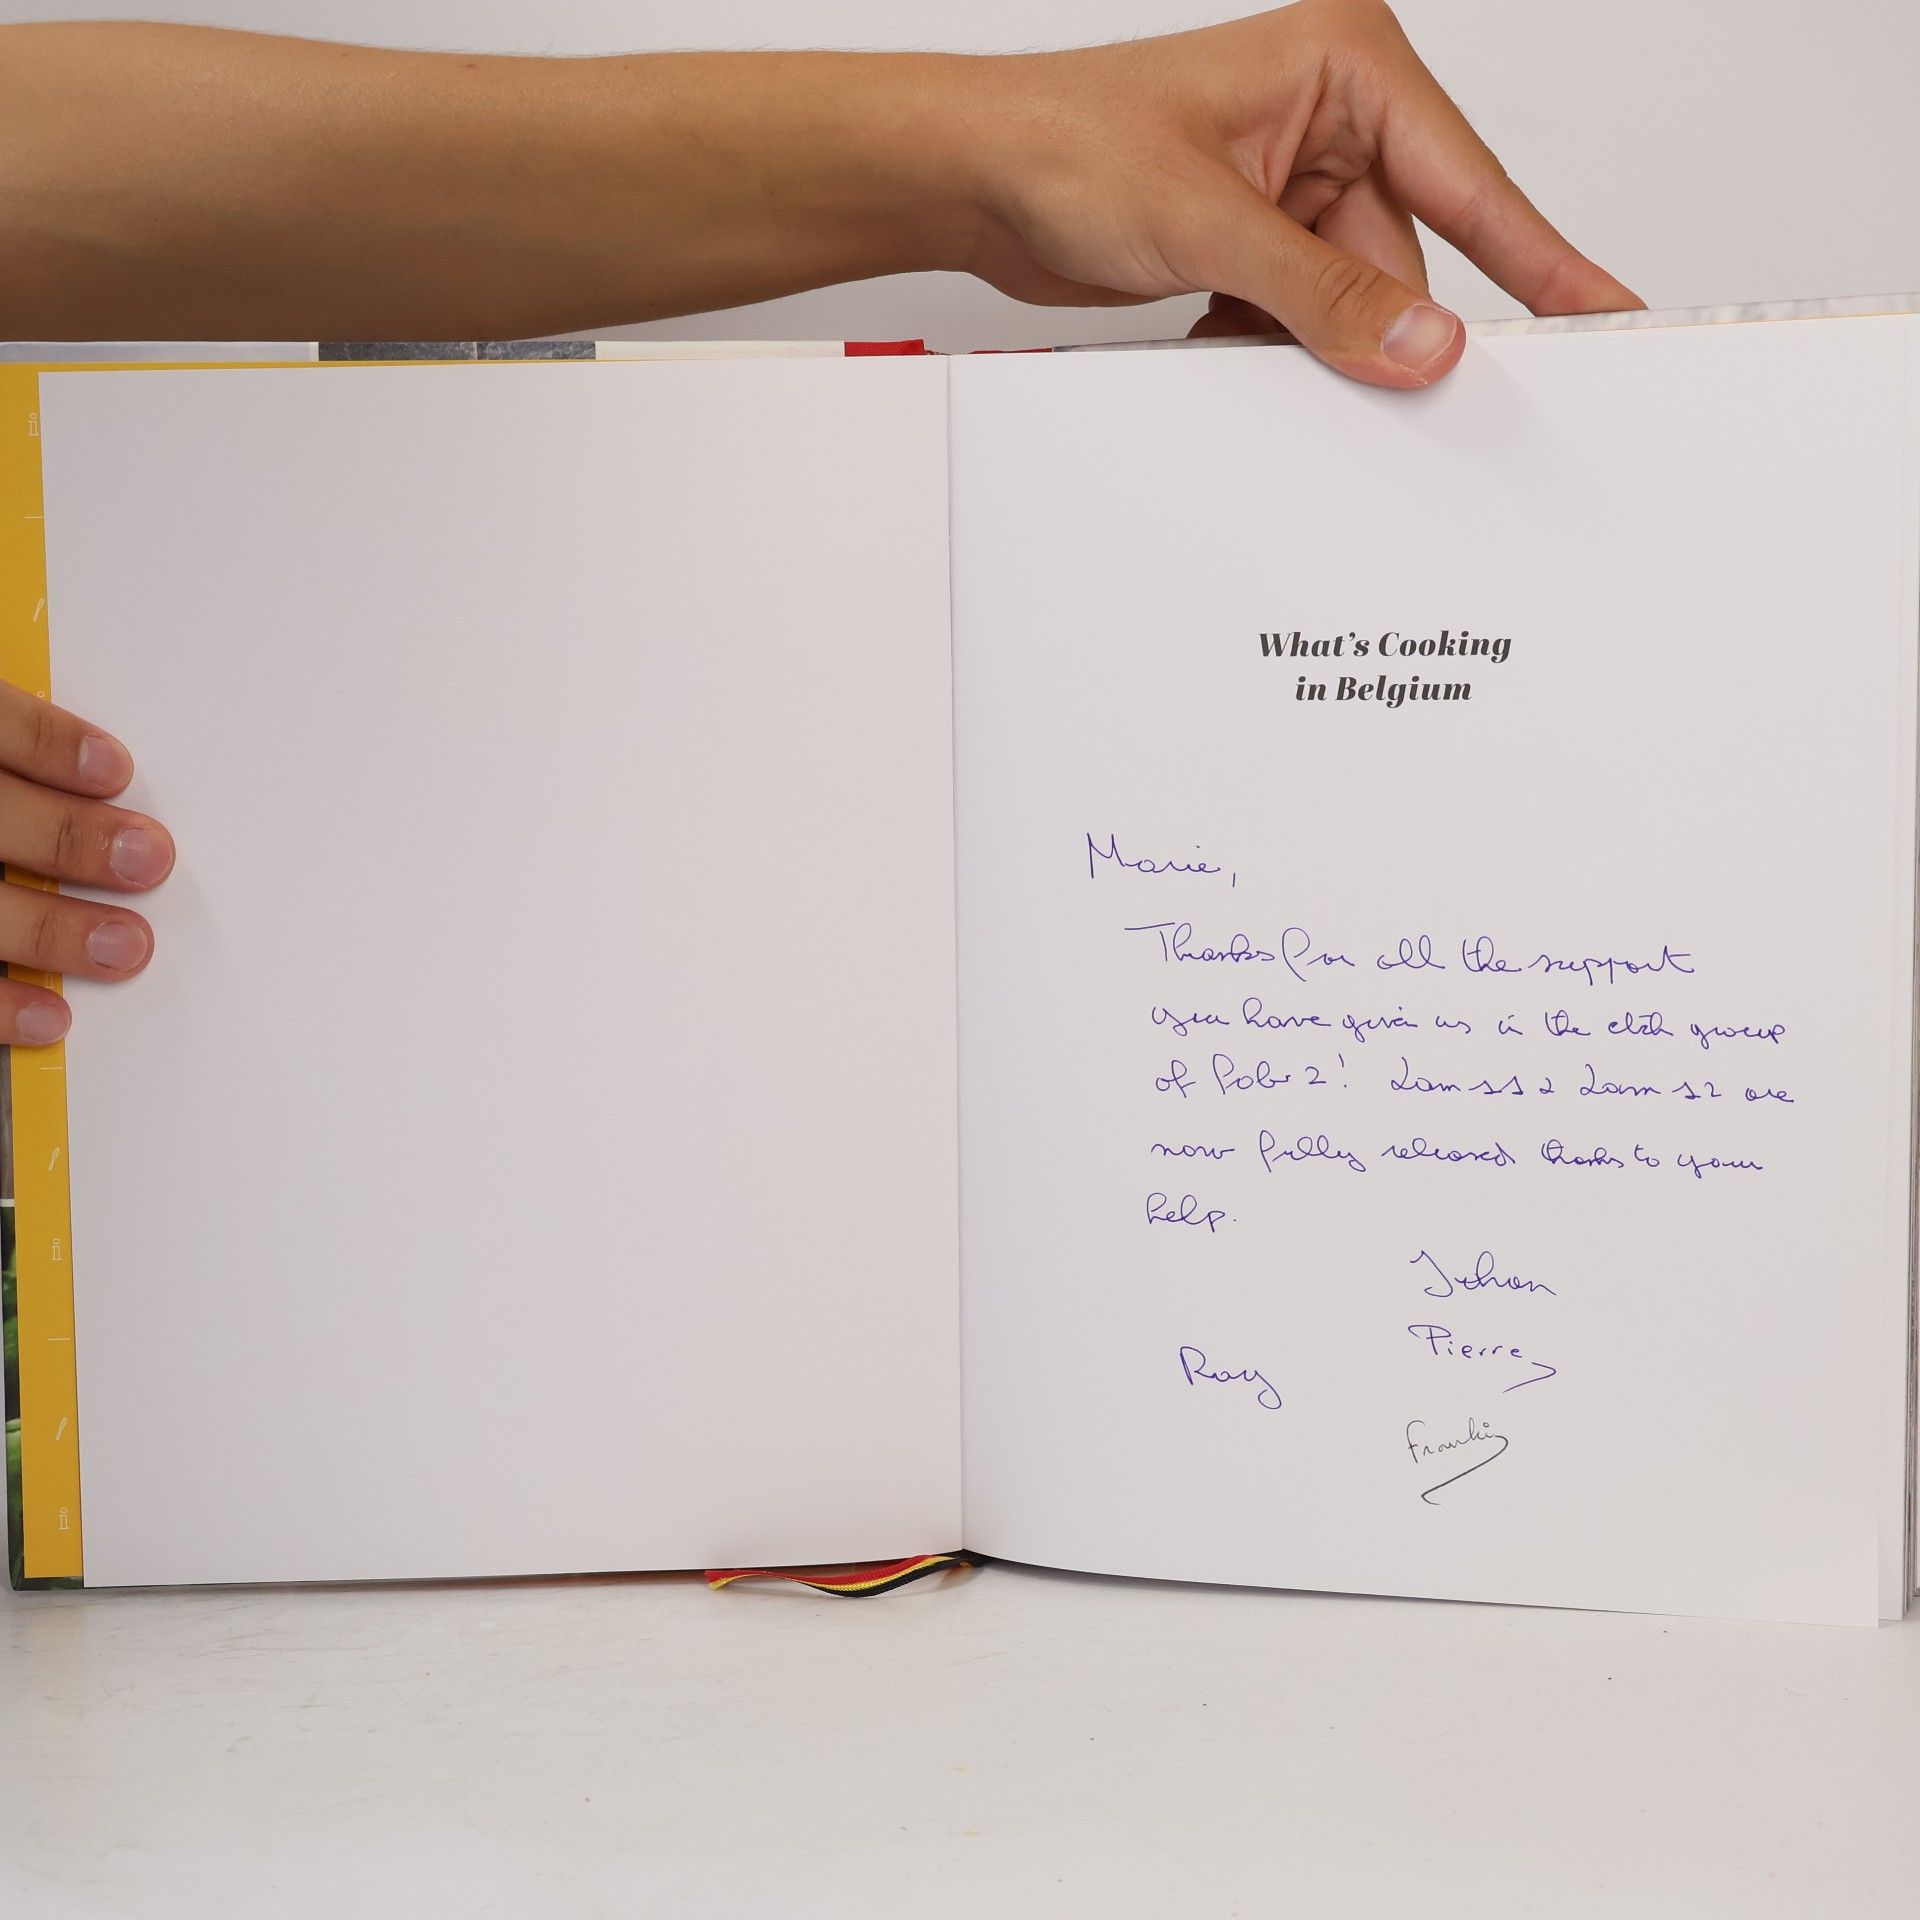 What's Cooking
in Belgium
Marie,
Thanks for all the support
you have given us in the etch group
of Fab 2! Lam 11 2 Lam 12 are
now fully released thanks to your
help.
Johan
Pierre
Roy